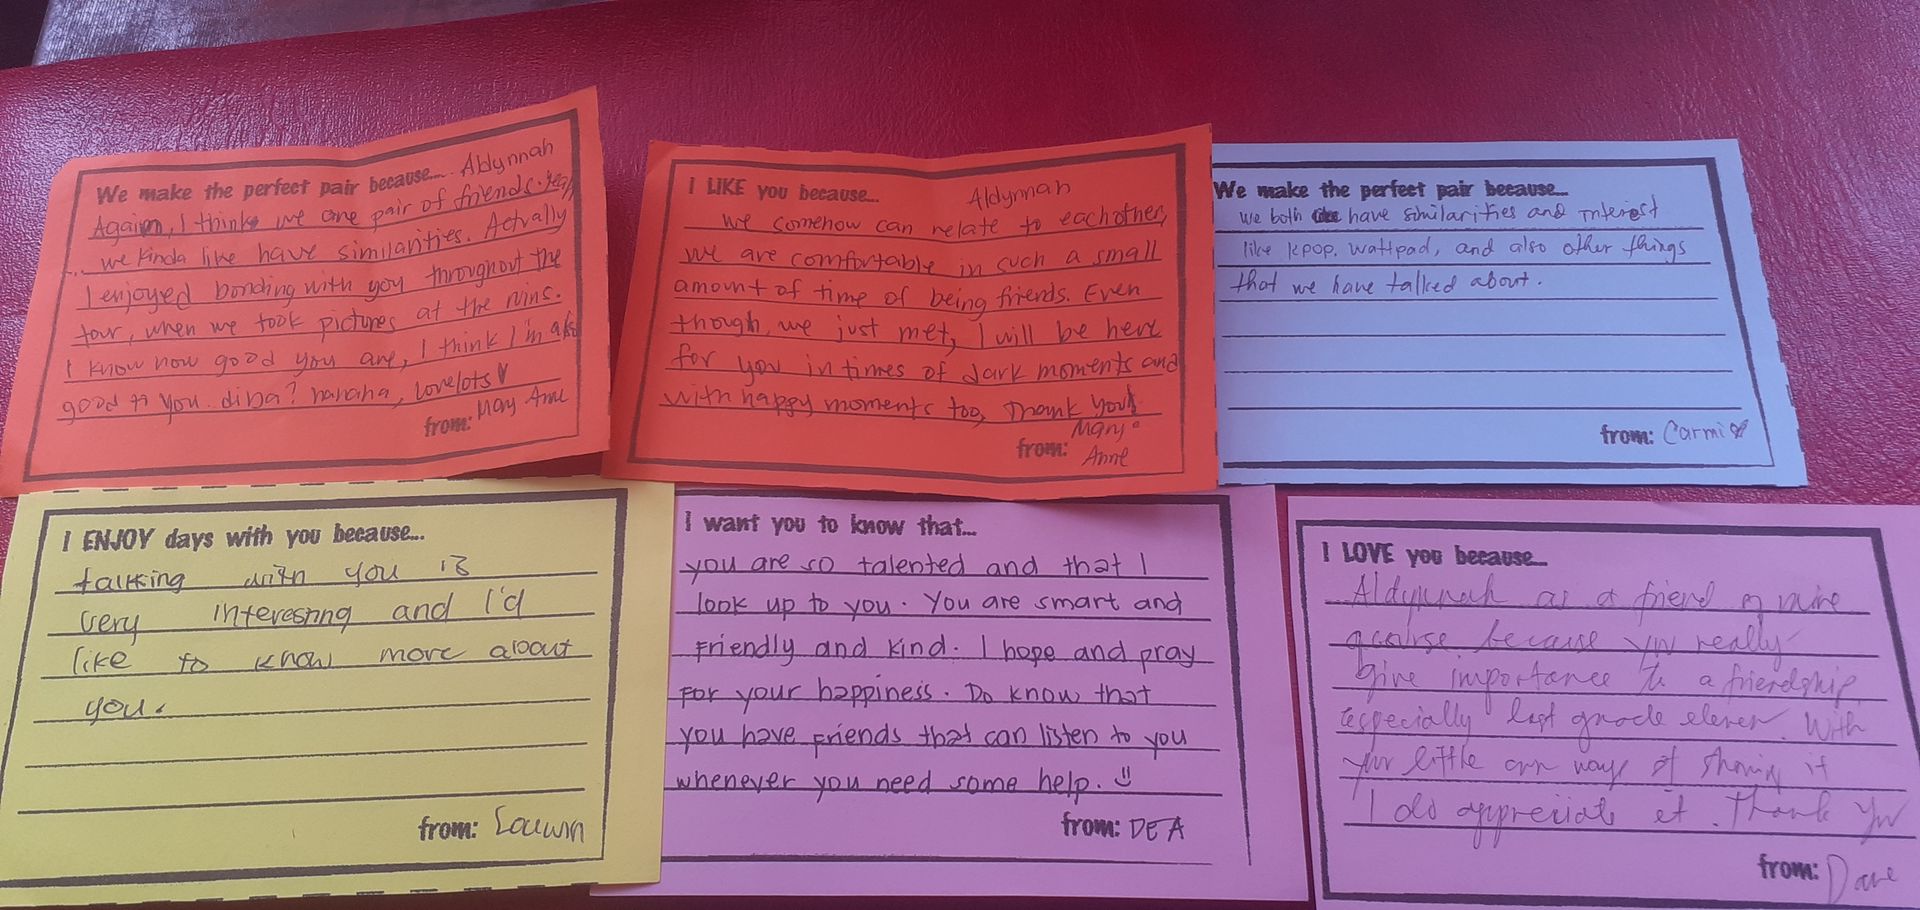 We make the perfect pair because.... Aldynnah
Again, I think we are pair of friends. Yeap
... we kinda like have similarities. Actually
I enjoyed bonding with you throughout the
tour, when we took pictures at the ruins.
I know how good you are, I think I'm also
good to you. diba? hahaha, lovelots
from: Mary Anne
I LIKE you because... Aldynnah
we somehow can relate to eachother,
we are comfortable in such a small
amount of time of being friends. Even
though, we just met, I will be here
for you in times of dark moments and
with happy moments too, Thank you!
from: Mary
Anne
We make the perfect pair because...
we both have similarities and interest
like kpop, wattpad, and also other things
that we have talked about.
from: Carmi
I ENJOY days with you because...
talking with you is
very interesting and I'd
like to know more about
you.
from: Louwin
I want you to know that...
you are so talented and that I
look up to you. You are smart and
Friendly and kind. I hope and pray
For your happiness. Do know that
you have Friends that can listen to you
whenever you need some help.
from: DEA
I LOVE you because...
Aldynnah as a friend of mine
because you really
give importance to a friendship
especially last grade eleven. With
your little own ways of showing it
I do appreciate it. Thank you
from: Dave